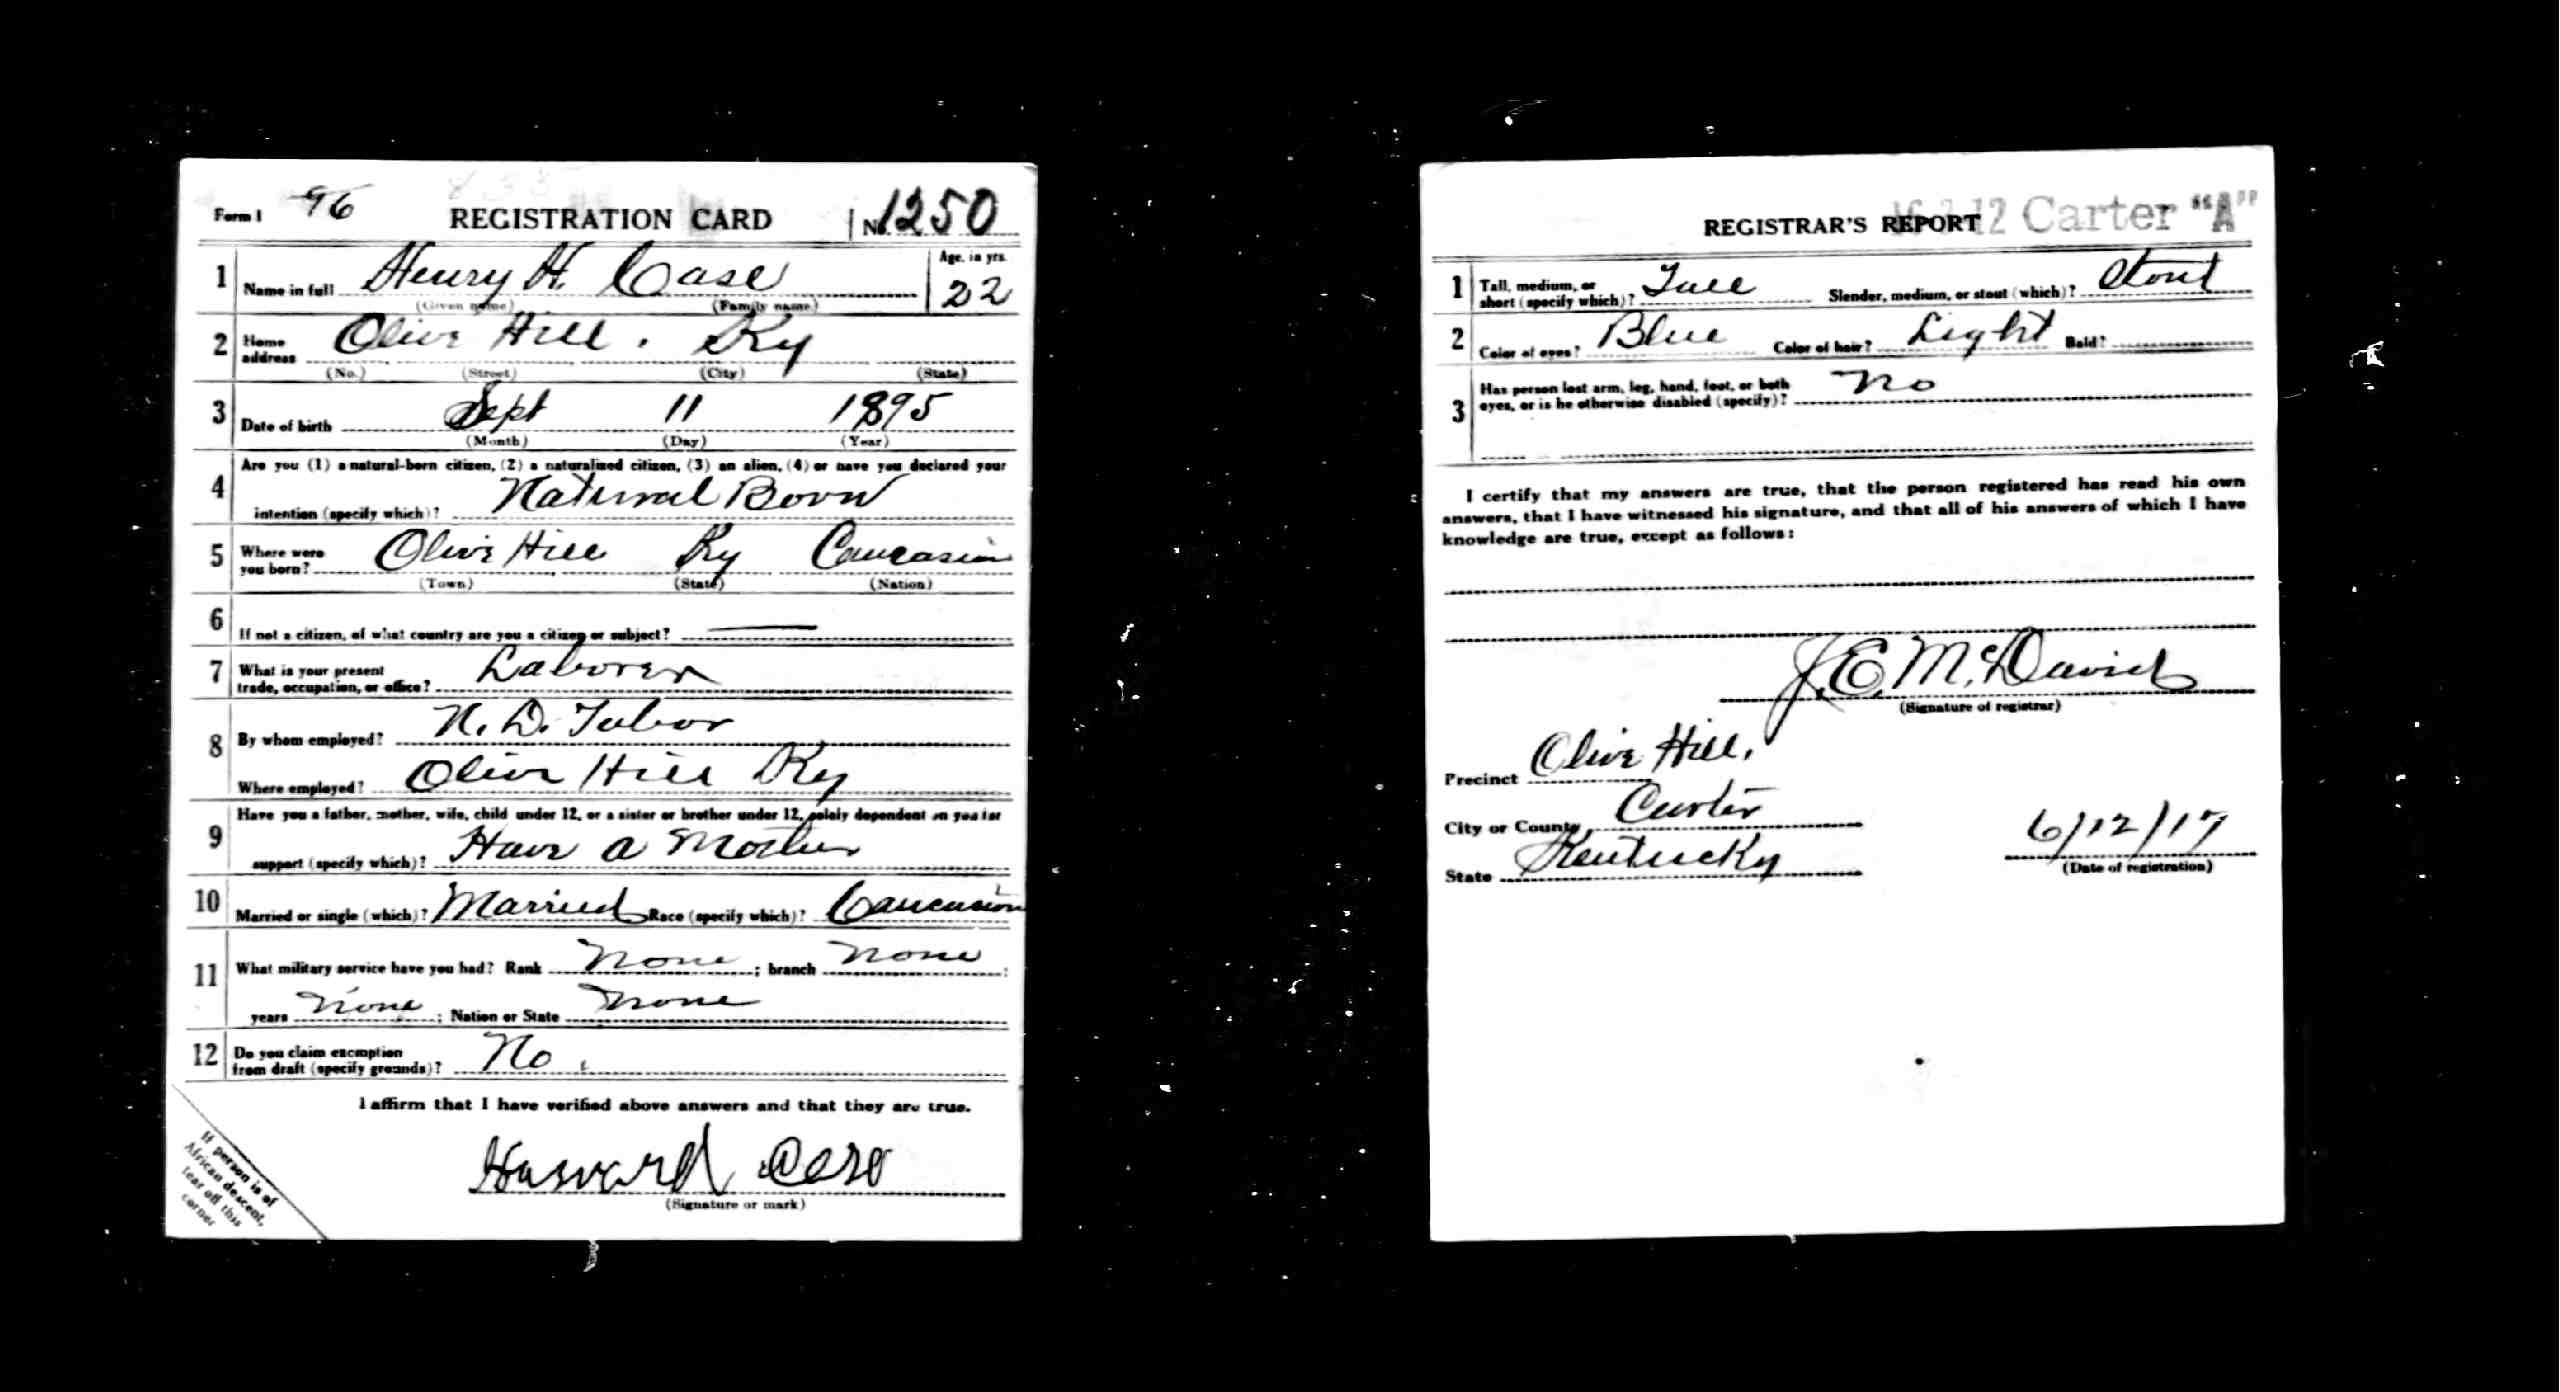 Form 1 96 REGISTRATION CARD No. 1250
1 Name in full Henry H. Case Age, in yrs. 22
(Given name) (Family name)
2 Home address Olive Hill. Ky
(No.) (Street) (City) (State)
3 Date of birth Sept 11 1895
(Month) (Day) (Year)
4 Are you (1) a natural-born citizen, (2) a naturalized citizen, (3) an alien, (4) or have you declared your
intention (specify which)? Natural Born
5 Where were you born? Olive Hill Ky Caucasian
(Town) (State) (Nation)
6 If not a citizen, of what country are you a citizen or subject?
7 What is your present
trade, occupation, or office? Laborer
8 By whom employed? N. D. Tabor
Where employed? Olive Hill Ky
9 Have you a father, mother, wife, child under 12, or a sister or brother under 12, solely dependent on you for
support (specify which)? Have a Mother
10 Married or single (which)? Married Race (specify which)? Caucasian
11 What military service have you had? Rank None ; branch None ;
years None ; Nation or State None
12 Do you claim exemption
from draft (specify grounds)? No.
I affirm that I have verified above answers and that they are true.
(Signature or mark)
If person is of
African descent,
tear off this
corner
REGISTRAR'S REPORT 12 Carter "A"
1 Tall, medium, or
short (specify which)? Tall Slender, medium, or stout (which)? Stout
2 Color of eyes? Blue Color of hair? Light Bald?
3 Has person lost arm, leg, hand, foot, or both
eyes, or is he otherwise disabled (specify)? No
I certify that my answers are true, that the person registered has read his own
answers, that I have witnessed his signature, and that all of his answers of which I have
knowledge are true, except as follows:
J. E. McDavid
(Signature of registrar)
Precinct Olive Hill.
City or County Carter
State Kentucky 6/12/17
(Date of registration)